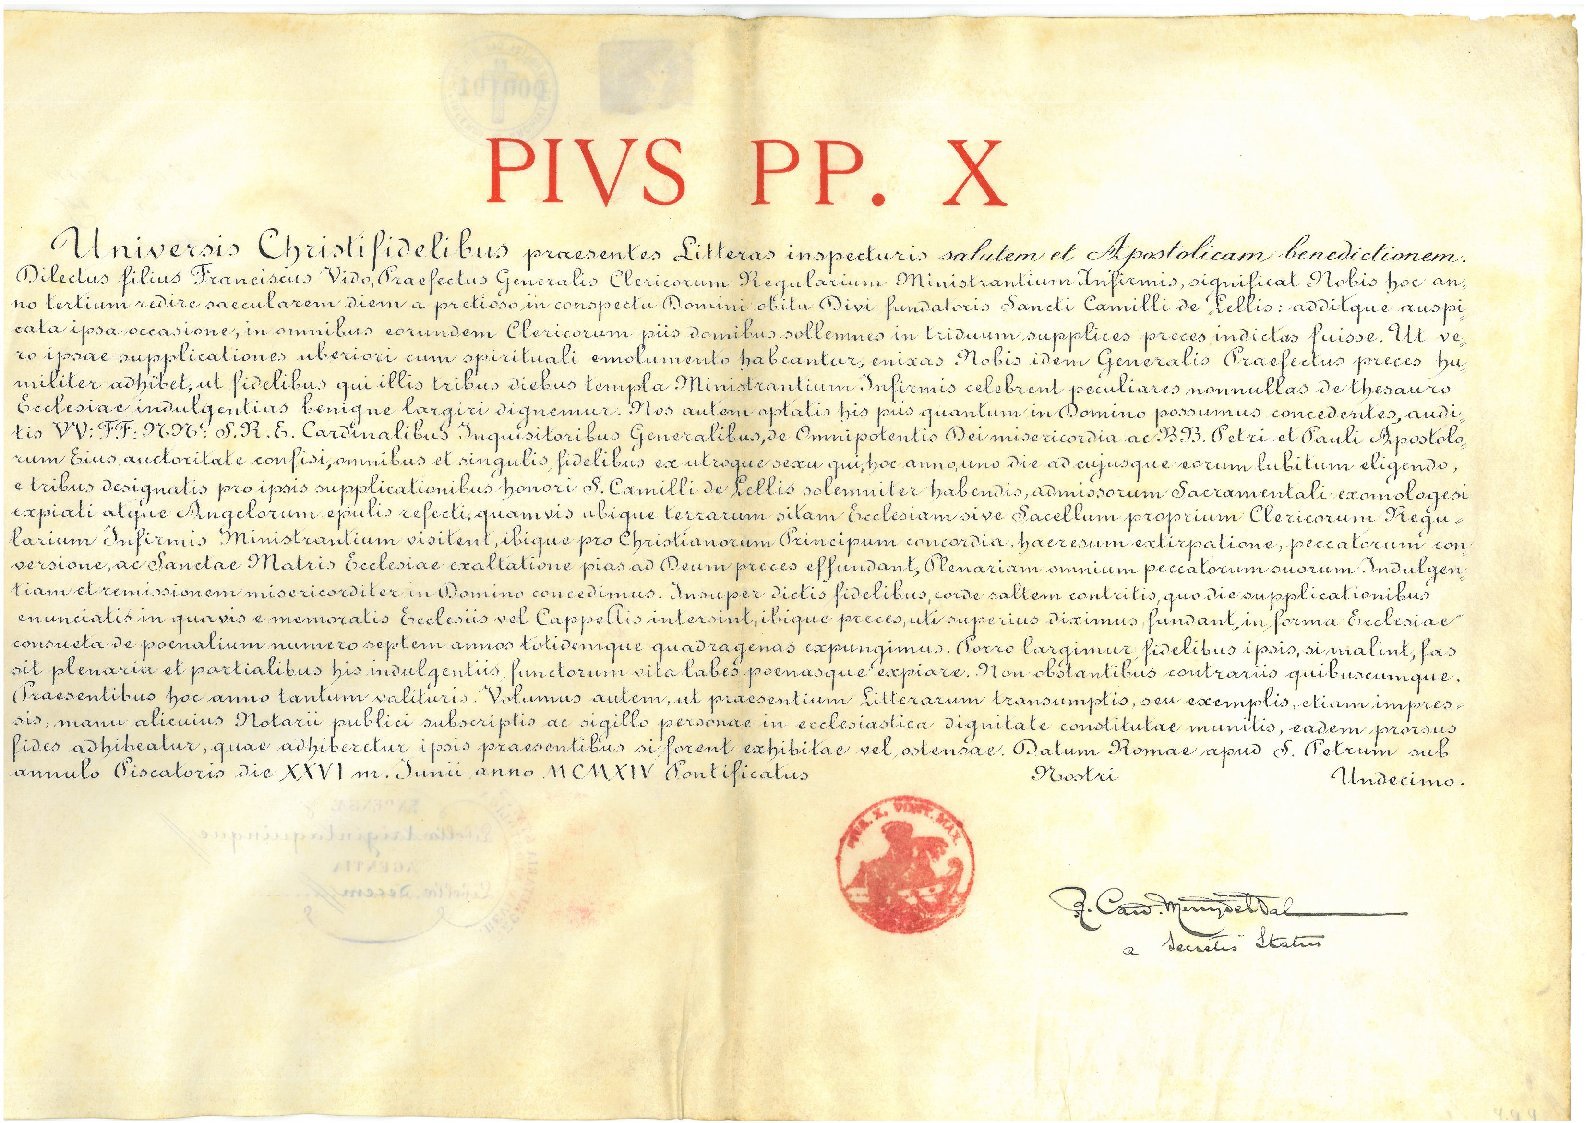 PIVS PP. X
Universis Christifidelibus praesentes Litteras inspecturis salutem et Apostolicam benedictionem.
Dilectus filius Franciscus Vido, Praefectus Generalis Clericorum Regularium Ministrantium Infirmis, significat Nobis hoc an-
no tertium redire saecularem diem a pretioso, in conspectu Domini obitu Divi fundatoris Sancti Camilli de Lellis: additque auspi-
cata ipsa occasione, in omnibus eorundem Clericorum piis domibus sollemnes in triduum supplices preces indictas fuisse. Ut ve-
ro ipsae supplicationes uberiori cum spirituali emolumento habeantur, enixas Nobis idem Generalis Praefectus preces hu-
militer adhibet, ut fidelibus qui illis tribus diebus templa Ministrantium Infirmis celebrent peculiares nonnullas de thesauro
Ecclesiae indulgentias benigne largiri dignemur. Nos autem optatis his piis quantum in Domino possumus concedentes, audi-
tis VV: FF: NN: S. R. E. Cardinalibus Inquisitoribus Generalibus, de Omnipotentis Dei misericordia ac BB. Petri et Pauli Apostolo-
rum Eius auctoritate confisi, omnibus et singulis fidelibus ex utroque sexu qui, hoc anno, uno die ad cujusque eorum lubitum eligendo,
e tribus designatis pro ipsis supplicationibus honori S. Camilli de Lellis solemniter habendis, admissorum Sacramentali exomologesi
expiati atque Angelorum epulis refecti, quamvis ubique terrarum sitam Ecclesiam sive Sacellum proprium Clericorum Regu-
larium Infirmis Ministrantium visitent, ibique pro Christianorum Principum concordia, haeresum extirpatione, peccatorum con-
versione, ac Sanctae Matris Ecclesiae exaltatione pias ad Deum preces effundant, Plenariam omnium peccatorum suorum Indulgen-
tiam et remissionem misericorditer in Domino concedimus. Insuper dictis fidelibus, corde saltem contritis, quo die supplicationibus
enunciatis in quavis e memoratis Ecclesiis vel Cappellis intersint, ibique preces, uti superius diximus, fundant, in forma Ecclesiae
consueta de poenalium numero septem annos totidemque quadragenas expungimus. Porro largimur fidelibus ipsis, si malint, fas
sit plenaria et partialibus his indulgentiis functorum vita labes poenasque expiare. Non obstantibus contrariis quibuscumque.
Praesentibus hoc anno tantum valituris. Volumus autem, ut praesentium Litterarum transumptis, seu exemplis, etiam impres-
sis, manu alicuius Notarii publici subscriptis ac sigillo personae in ecclesiastica dignitate constitutae munitis, eadem prorsus
fides adhibeatur, quae adhiberetur ipsis praesentibus si forent exhibitae vel ostensae. Datum Romae apud S. Petrum sub
annulo Piscatoris die XXVI m. Junii anno MCMXIV Pontificatus Nostri Undecimo.
PIUS. X. PONT. MAX.
R. Card. Merry del Val
a Secretis Status